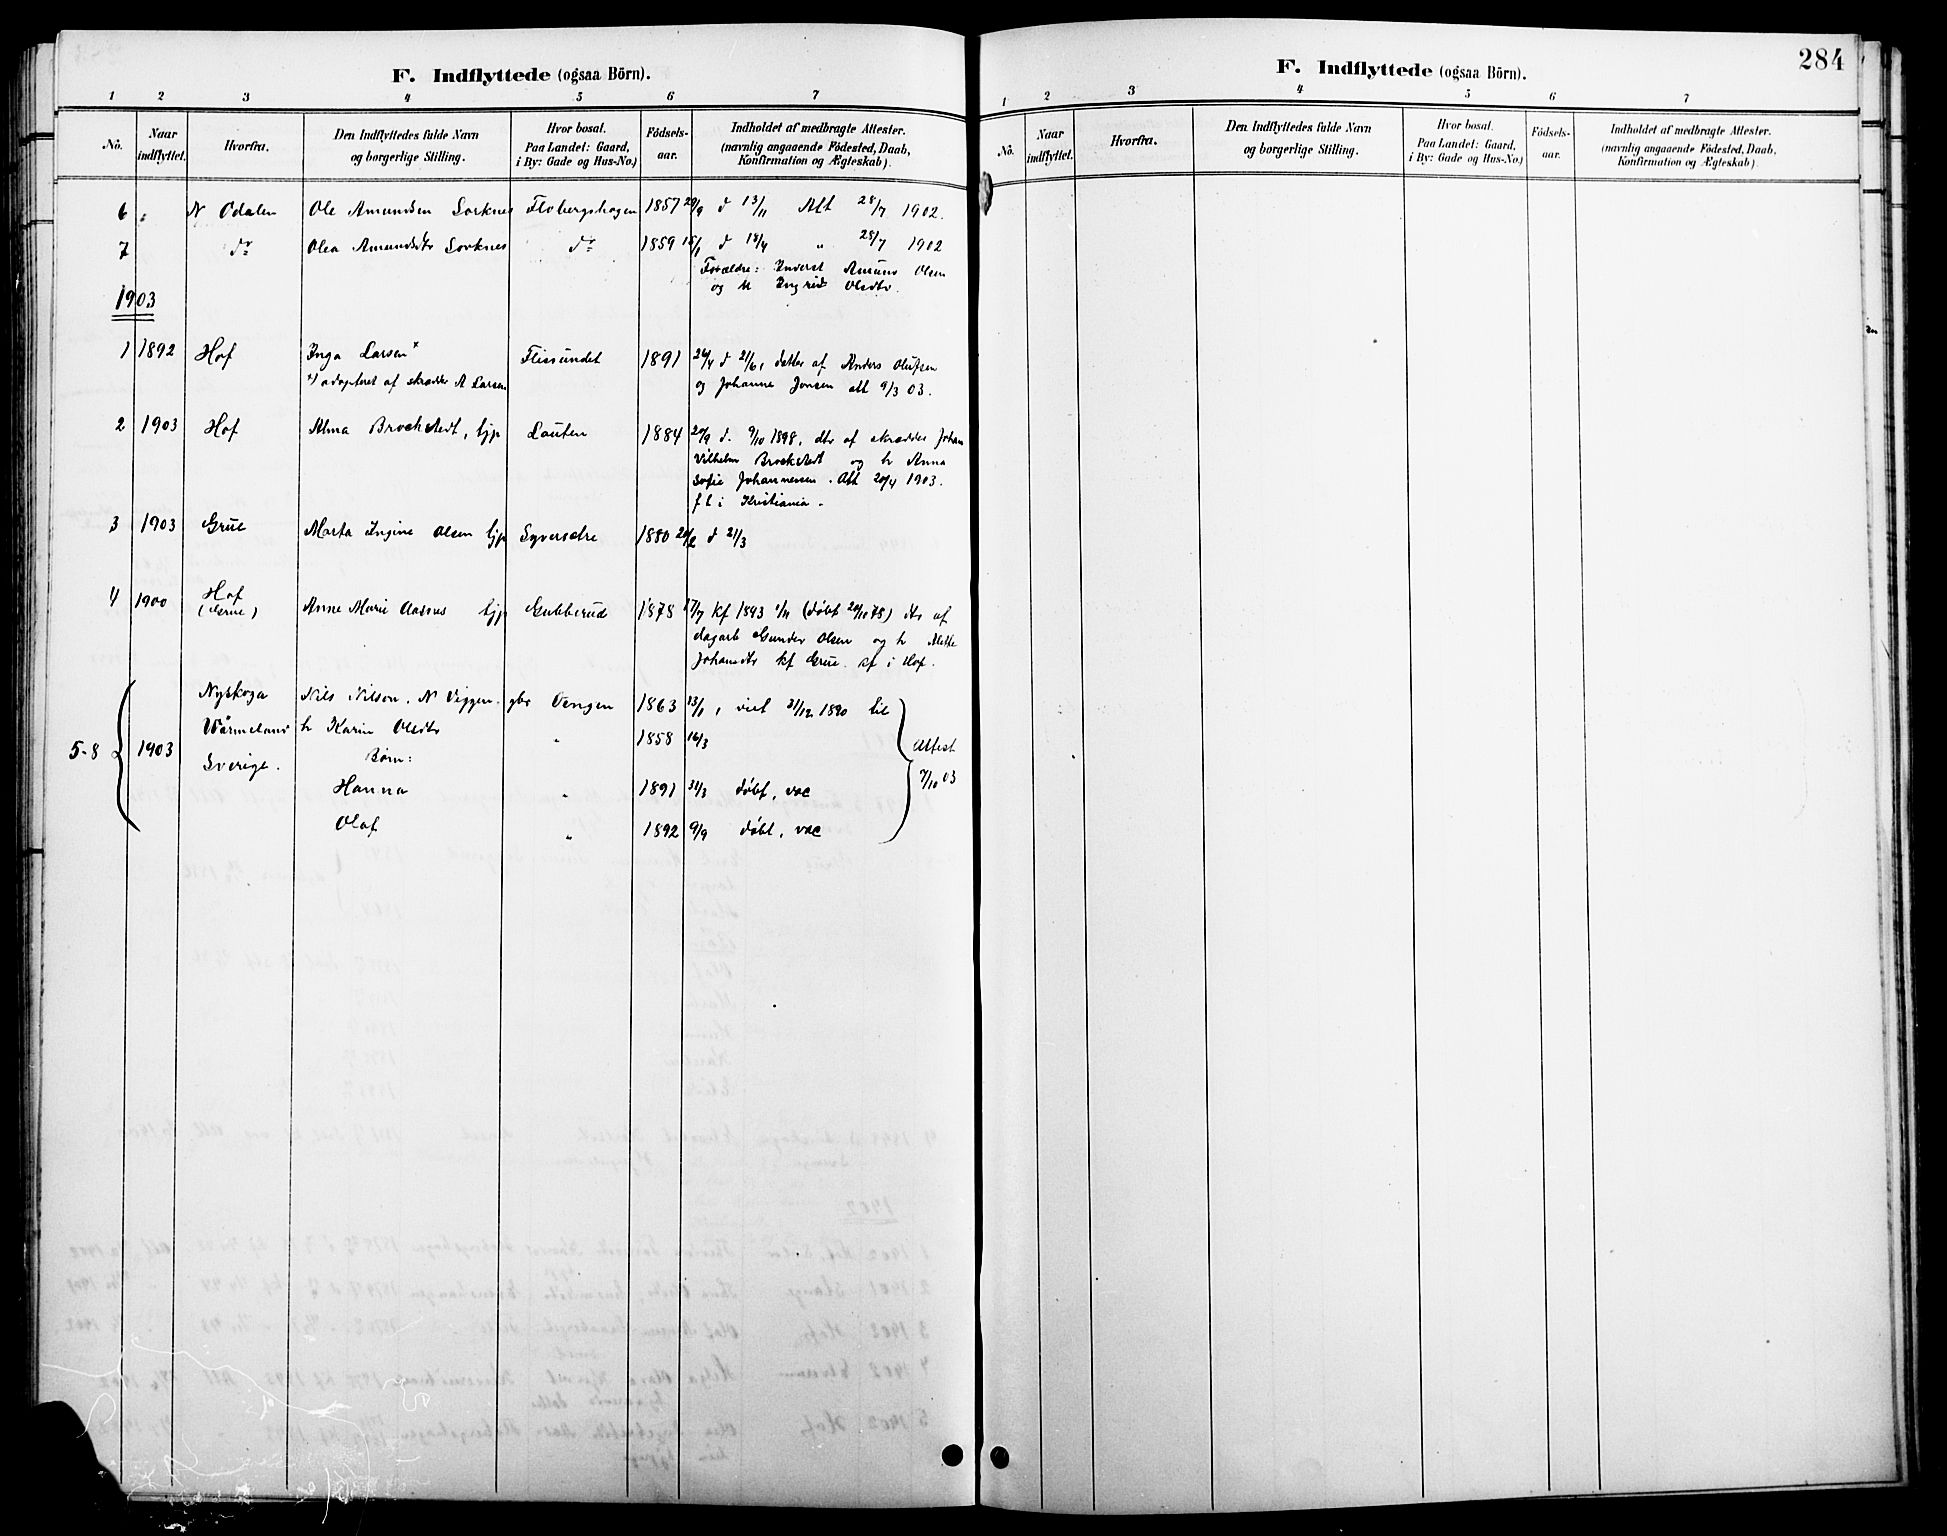 F. Indflyttede (ogsaa Börn).
1 2 3 4 5 6 7
Nò. Naar indflyttet. Hvorfra. Den Indflyttedes fulde Navn og borgerlige Stilling. Hvor bosat. Paa Landet: Gaard, i By: Gade og Hus-No.) Födsels-aar. Indholdet af medbragte Attester. (navnlig angaaende Födested, Daab, Konfirmation og Ægteskab).
6 " N Odalen Ole Amundsen Sorknes Flobergshagen 1857 29/9 d 13/11 Att 28/7 1902.
7 do Olea Amundsdtr Sorknes do 1859 15/1 d 18/4 " 28/7 1902
Forældre: Inderst Amund Olsen
og h Ingrid Olsdtr.
1903
1 1892 Hof Inga Larsen x Flissundet 1891 26/4 d 21/6, datter af Anders Olufsen
x) adopteret af skrædder A Larsen og Johanne Jonsen att 9/3 03.
2 1903 Hof Alma Brockstedt, tjp Lauten 1884 20/9 d. 9/10 1898, dtr af skrædder Johan
Vilhelm Brockstedt og h Anna
Sofie Johannessen. Att 20/4 1903.
f i Kristiania.
3 1903 Grue Marta Ingine Olsen tjp Syversætre 1880 20/2 d 21/3
4 1900 Hof (Grue) Anne Marie Aasnes tjp Gubberud 1878 17/7 kf 1893 1/11 (døbt 20/10 78) dtr af
dagarb Gunder Olsen og h Mette
Johansdtr kf Grue. i Hof.
5-8 1903 Nyskoga Nils Nilson, N Viggen. gbr Vangen 1863 13/1, viet 31/12 1890 til
Värmeland h Karin Olsdtr " 1858 16/3 Attest
Sverige. Børn: 7/10 03
Hanna " 1891 31/3 døbt, vac
Olaf " 1892 9/9 døbt, vac
284
F. Indflyttede (ogsaa Börn).
1 2 3 4 5 6 7
Nò. Naar indflyttet. Hvorfra. Den Indflyttedes fulde Navn og borgerlige Stilling. Hvor bosat. Paa Landet: Gaard, i By: Gade og Hus-No.) Födsels-aar. Indholdet af medbragte Attester. (navnlig angaaende Födested, Daab, Konfirmation og Ægteskab).